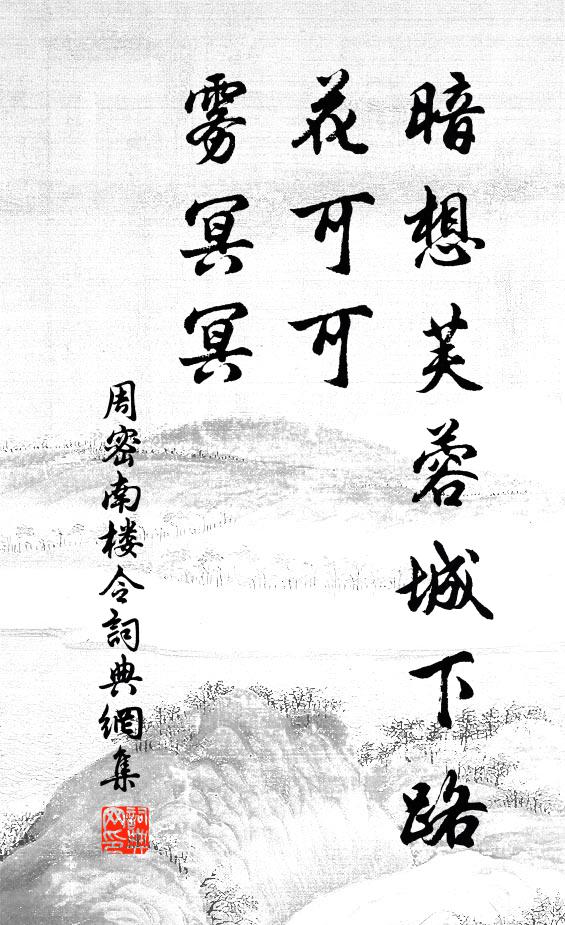 暗想芙蓉城下路
花可可
雾冥冥
周密南楼令詞典網集